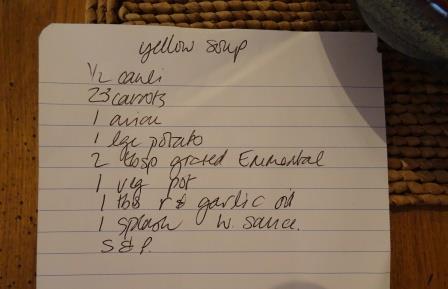 yellow soup
1/2 cauli
23 carrots
1 onion
1 lge potato
2 tbsp grated Emmental
1 veg pot
1 tbs r & garlic oil
1 splash W. Sauce.
S & P.